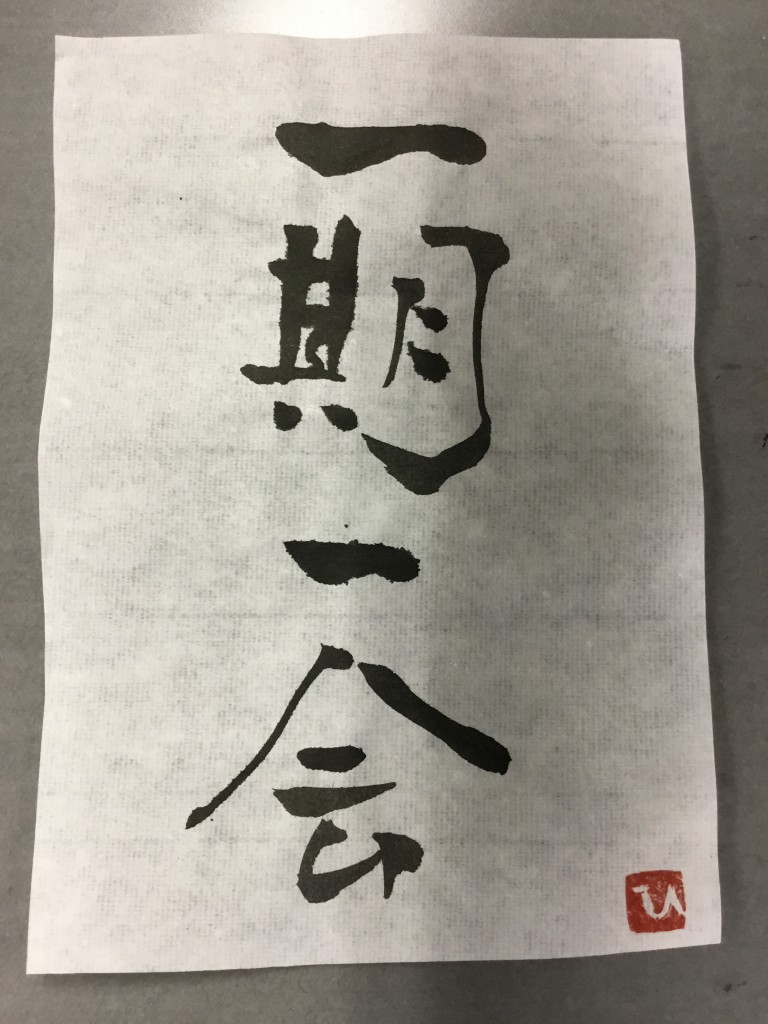 一期一会
ひ